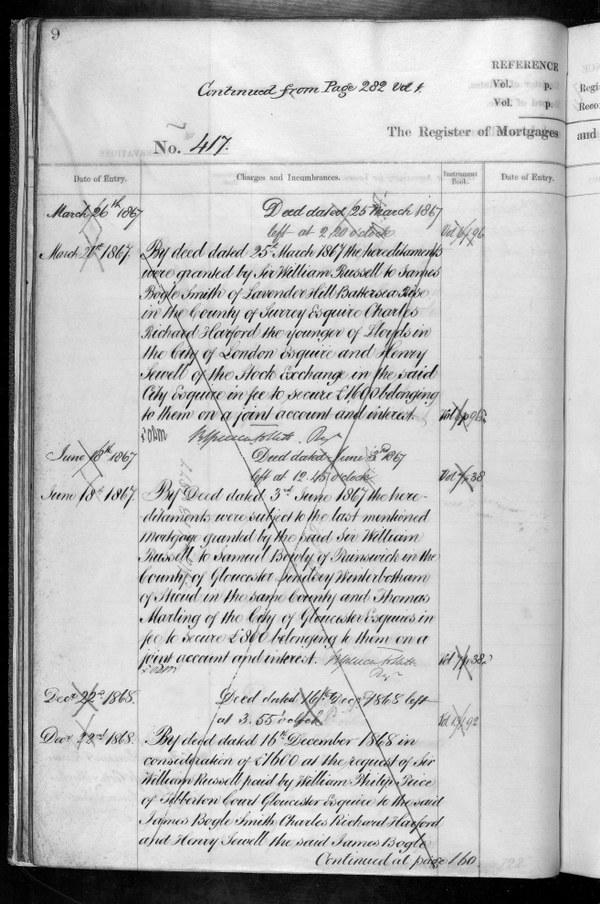 9
REFERENCE
Continued from Page 282 Vol 1.
Vol. p.
Vol. p.
No. 417.
The Register of Mortgages
and
Date of Entry.
Charges and Incumbrances.
Instrument Book.
Date of Entry.
March 26th 1867
Deed dated 25 March 1867
left at 2.20 o'clock
March 1867.
By deed dated 25th March 1867 the hereditaments
were granted by Sir William Russell to James
Bogle Smith of Lavender Hill Battersea Rise
in the County of Surrey Esquire Charles
Richard Harford the younger of Lloyds in
the City of London Esquire and Henry
Sewell of the Stock Exchange in the said
City Esquire in fee to secure £1600 belonging
to them on a joint account and interest.
June 18th 1867
Deed dated June 3rd 1867
left at 12.45 o'clock
Vol 7 p 38
June 18th 1867.
By Deed dated 3rd June 1867 the here-
ditaments were subject to the last mentioned
Mortgage granted by the said Sir William
Russell to Samuel Bowly of Prinswick in the
County of Gloucester Lindsey Winterbotham
of Stroud in the same County and Thomas
Marling of the City of Gloucester Esquires in
fee to secure £800 belonging to them on a
joint account and interest.
Vol 7 p 38
Decr 22nd 1868.
Deed dated 16th Decr 1868 left
at 3.55 o'clock
Decr 22nd 1868.
By deed dated 16th December 1868 in
consideration of £1600 at the request of Sir
William Russell paid by William Philip Price
of Tibberton Court Gloucester Esquire to the said
James Bogle Smith Charles Richard Harford
and Henry Sewell the said James Bogle
Continued at page 160